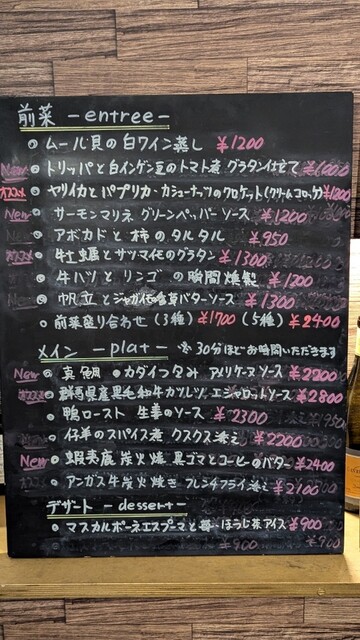 前菜 -entree-
ムール貝の白ワイン蒸し ¥1200
New トリッパと白インゲン豆のトマト煮 グラタン仕立て
オススメ ヤリイカとパプリカ・カシューナッツのクロケット(クリームコロッケ) ¥1200
New サーモンマリネ グリーンペッパーソース ¥1200
アボカドと柿のタルタル ¥950
オススメ 牡蠣とサツマイモのグラタン ¥1300
牛ハツとリンゴの瞬間燻製 ¥1200
帆立とジャガイモ 香草バターソース ¥1300
前菜盛り合わせ (3種) ¥1700 (5種) ¥2400
メイン -plat- ※30分ほどお時間いただきます
New 真鯛のカダイフ包み アメリケーヌソース ¥2200
オススメ 群馬県産黒毛和牛カツレツ エシャロットソース ¥2800
鴨ロースト 生姜のソース ¥2300
仔羊のスパイス煮 クスクス添え ¥2200
New 蝦夷鹿 炭火焼 黒ゴマとコーヒーのバター ¥2400
オススメ アンガス牛炭火焼き フレンチフライ添え ¥2100
デザート -dessert-
マスカルポーネエスプーマと苺・ほうじ茶アイス ¥900